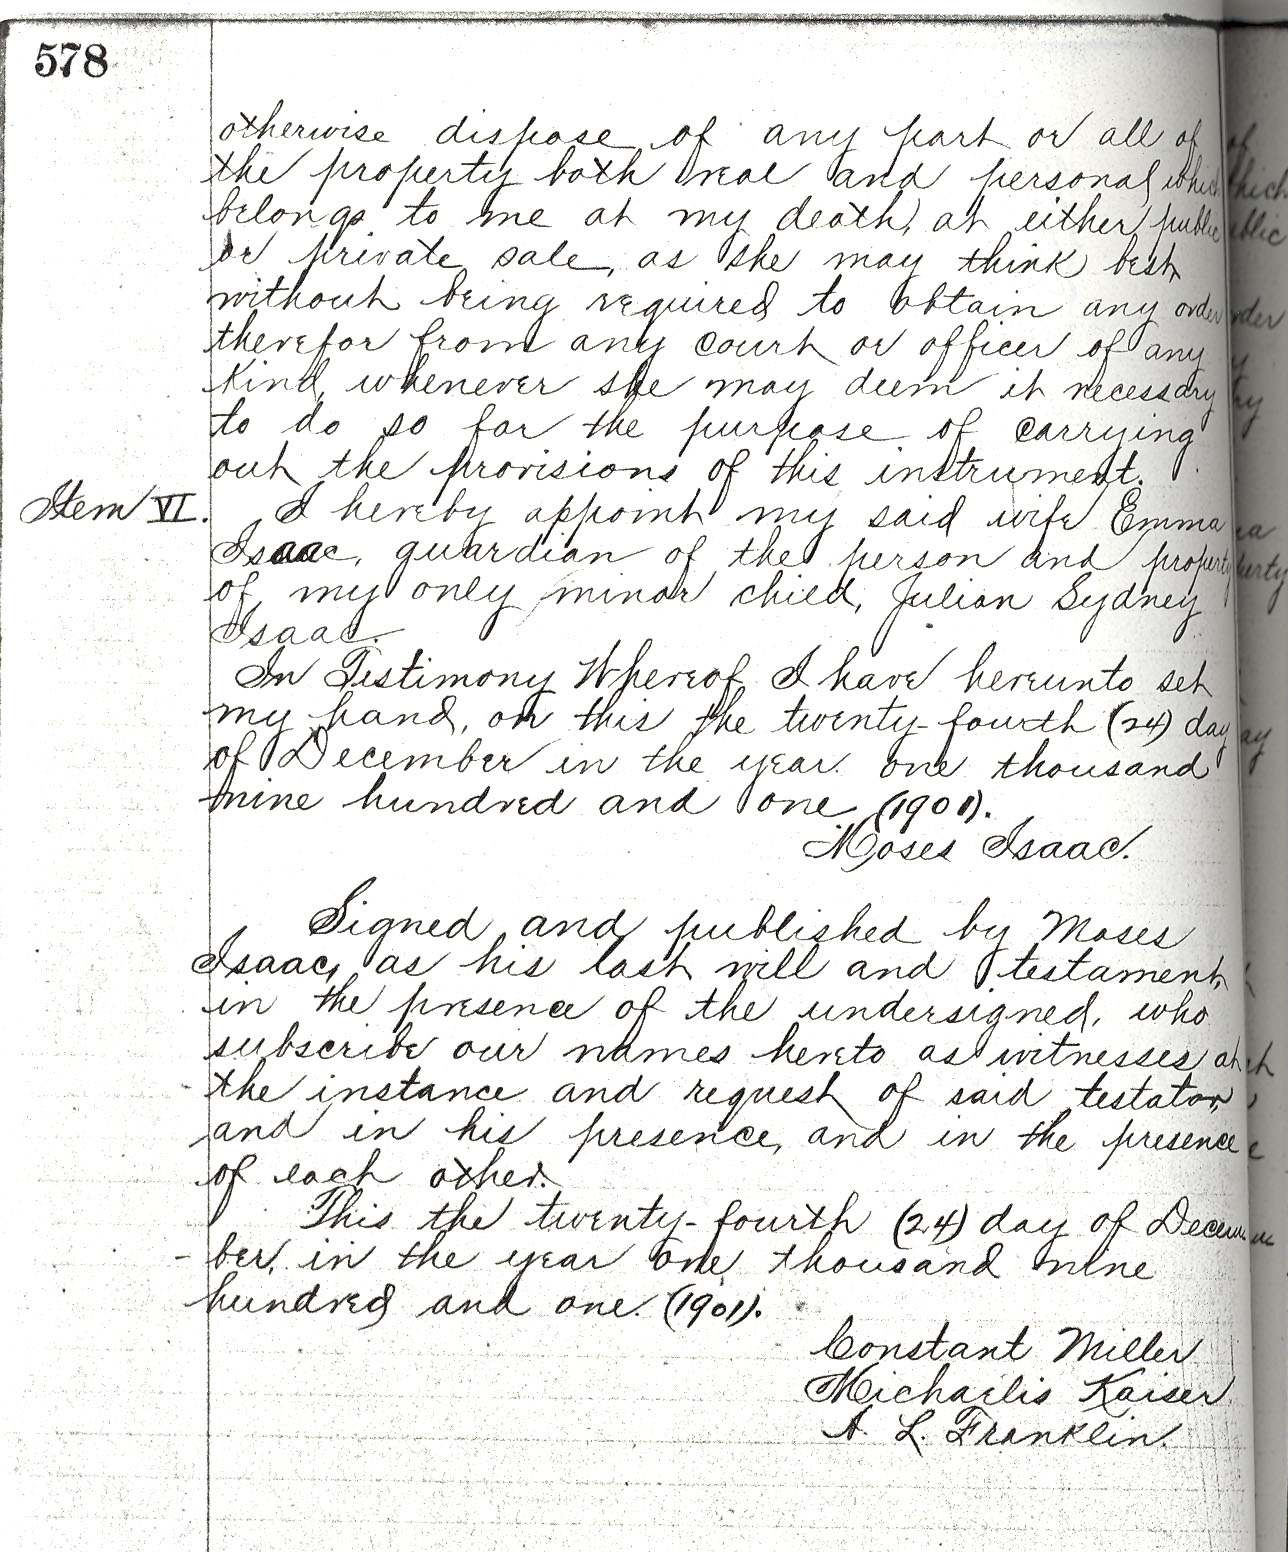 578
otherwise dispose of any part or all of
the property both real and personal which
belongs to me at my death, at either public
or private sale, as she may think best,
without being required to obtain any order
therefor from any court or officer of any
kind, whenever she may deem it necessary
to do so for the purpose of carrying
out the provisions of this instrument.
Item VI. I hereby appoint my said wife Emma
Isaac, guardian of the person and property
of my only minor child, Julian Sydney
Isaac.
In Testimony Whereof I have hereunto set
my hand, on this the twenty-fourth (24) day
of December in the year one thousand
nine hundred and one (1901).
Moses Isaac.
Signed and published by Moses
Isaac, as his last will and testament,
in the presence of the undersigned, who
subscribe our names hereto as witnesses at
the instance and request of said testator,
and in his presence, and in the presence
of each other.
This the twenty-fourth (24) day of Decem
-ber, in the year one thousand nine
hundred and one. (1901).
Constant Miller
Michaelis Kaiser
A. L. Franklin.